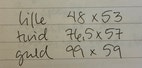 lille 48 x 53
tvid 76,5 x 57
guld 99 x 59